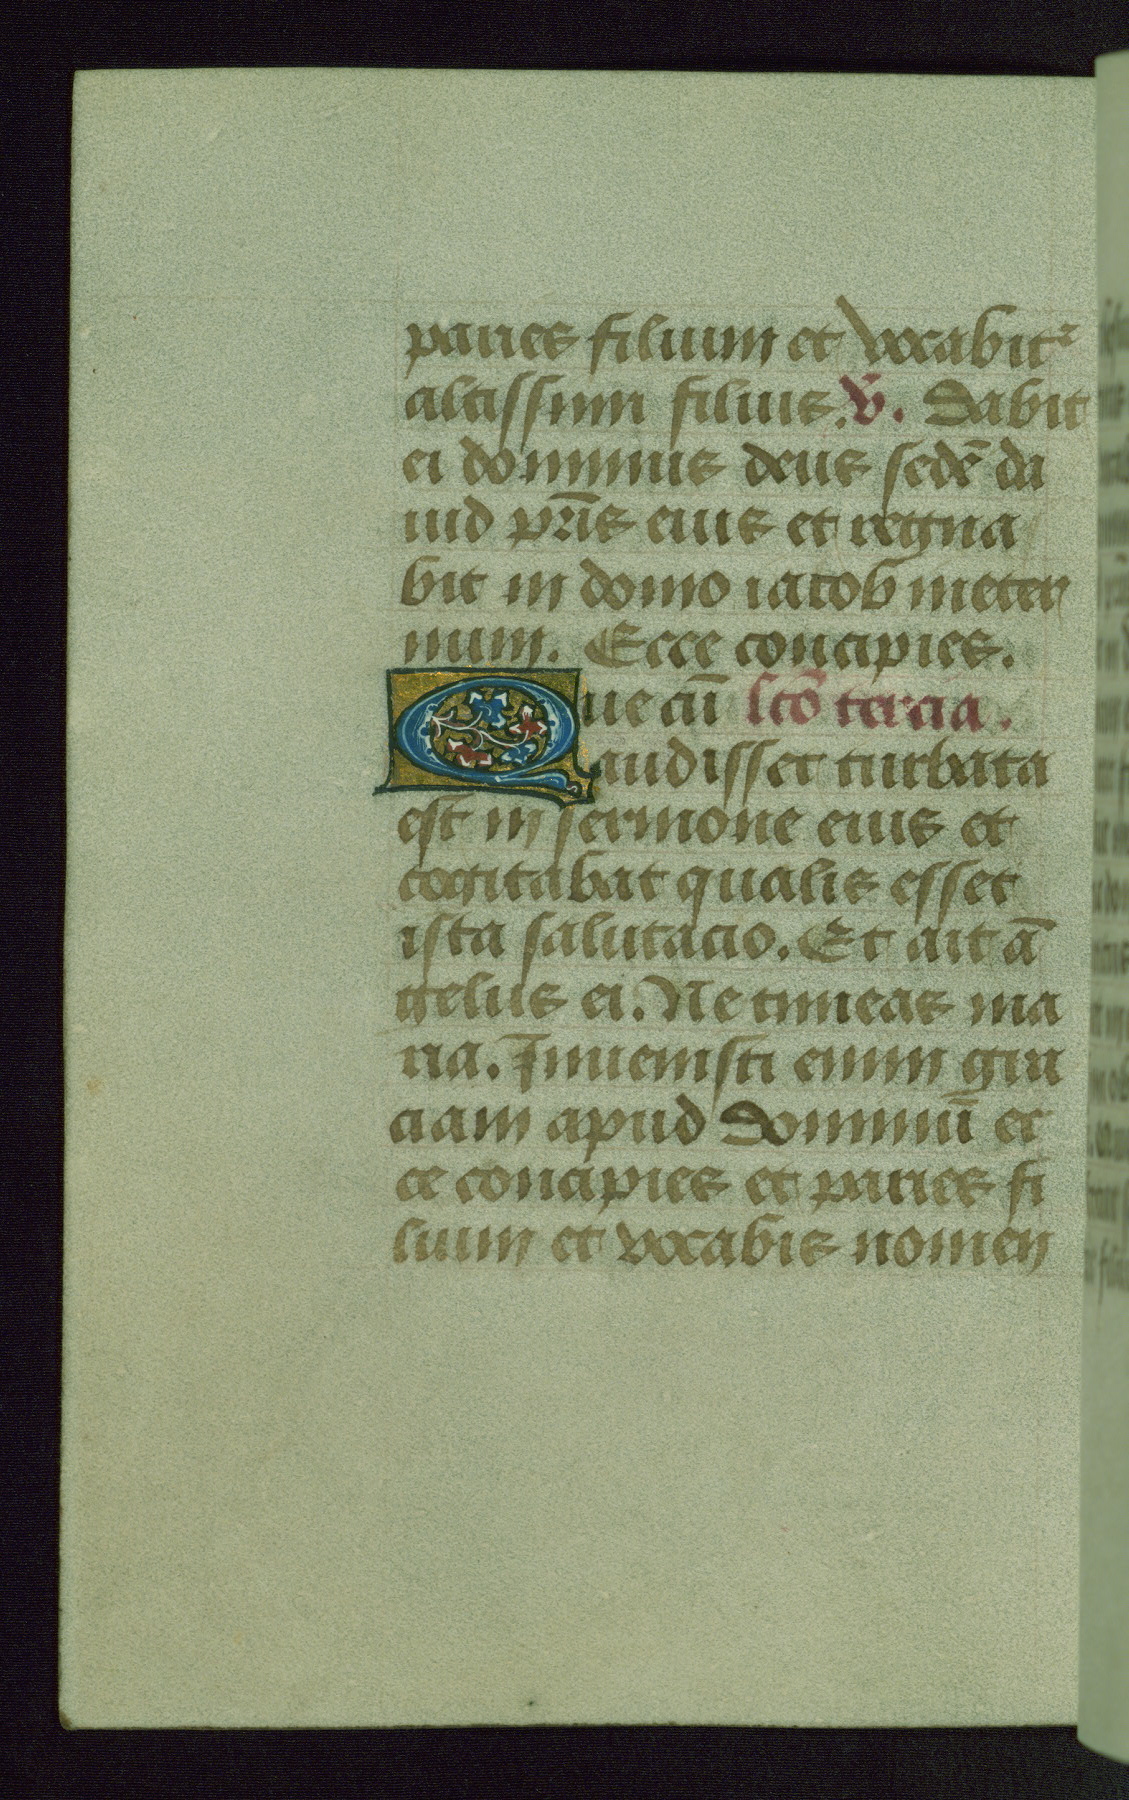 paries filium et vocabit᷑
altissimi filius. V̄. Dabit
ei dominus deus sedē da
uid pr̄is eius et regna
bit in domo iacob ineter
num. Ecce concipies.
Que cū lcō tercia.
audisset turbata
est in sermone eius et
cogitabat qualis esset
ista salutacio. Et ait ā
gelus ei. Ne timeas ma
ria. Inuenisti enim gra
ciam apud dominū ec
ce concipies et paries fi
lium et vocabis nomen